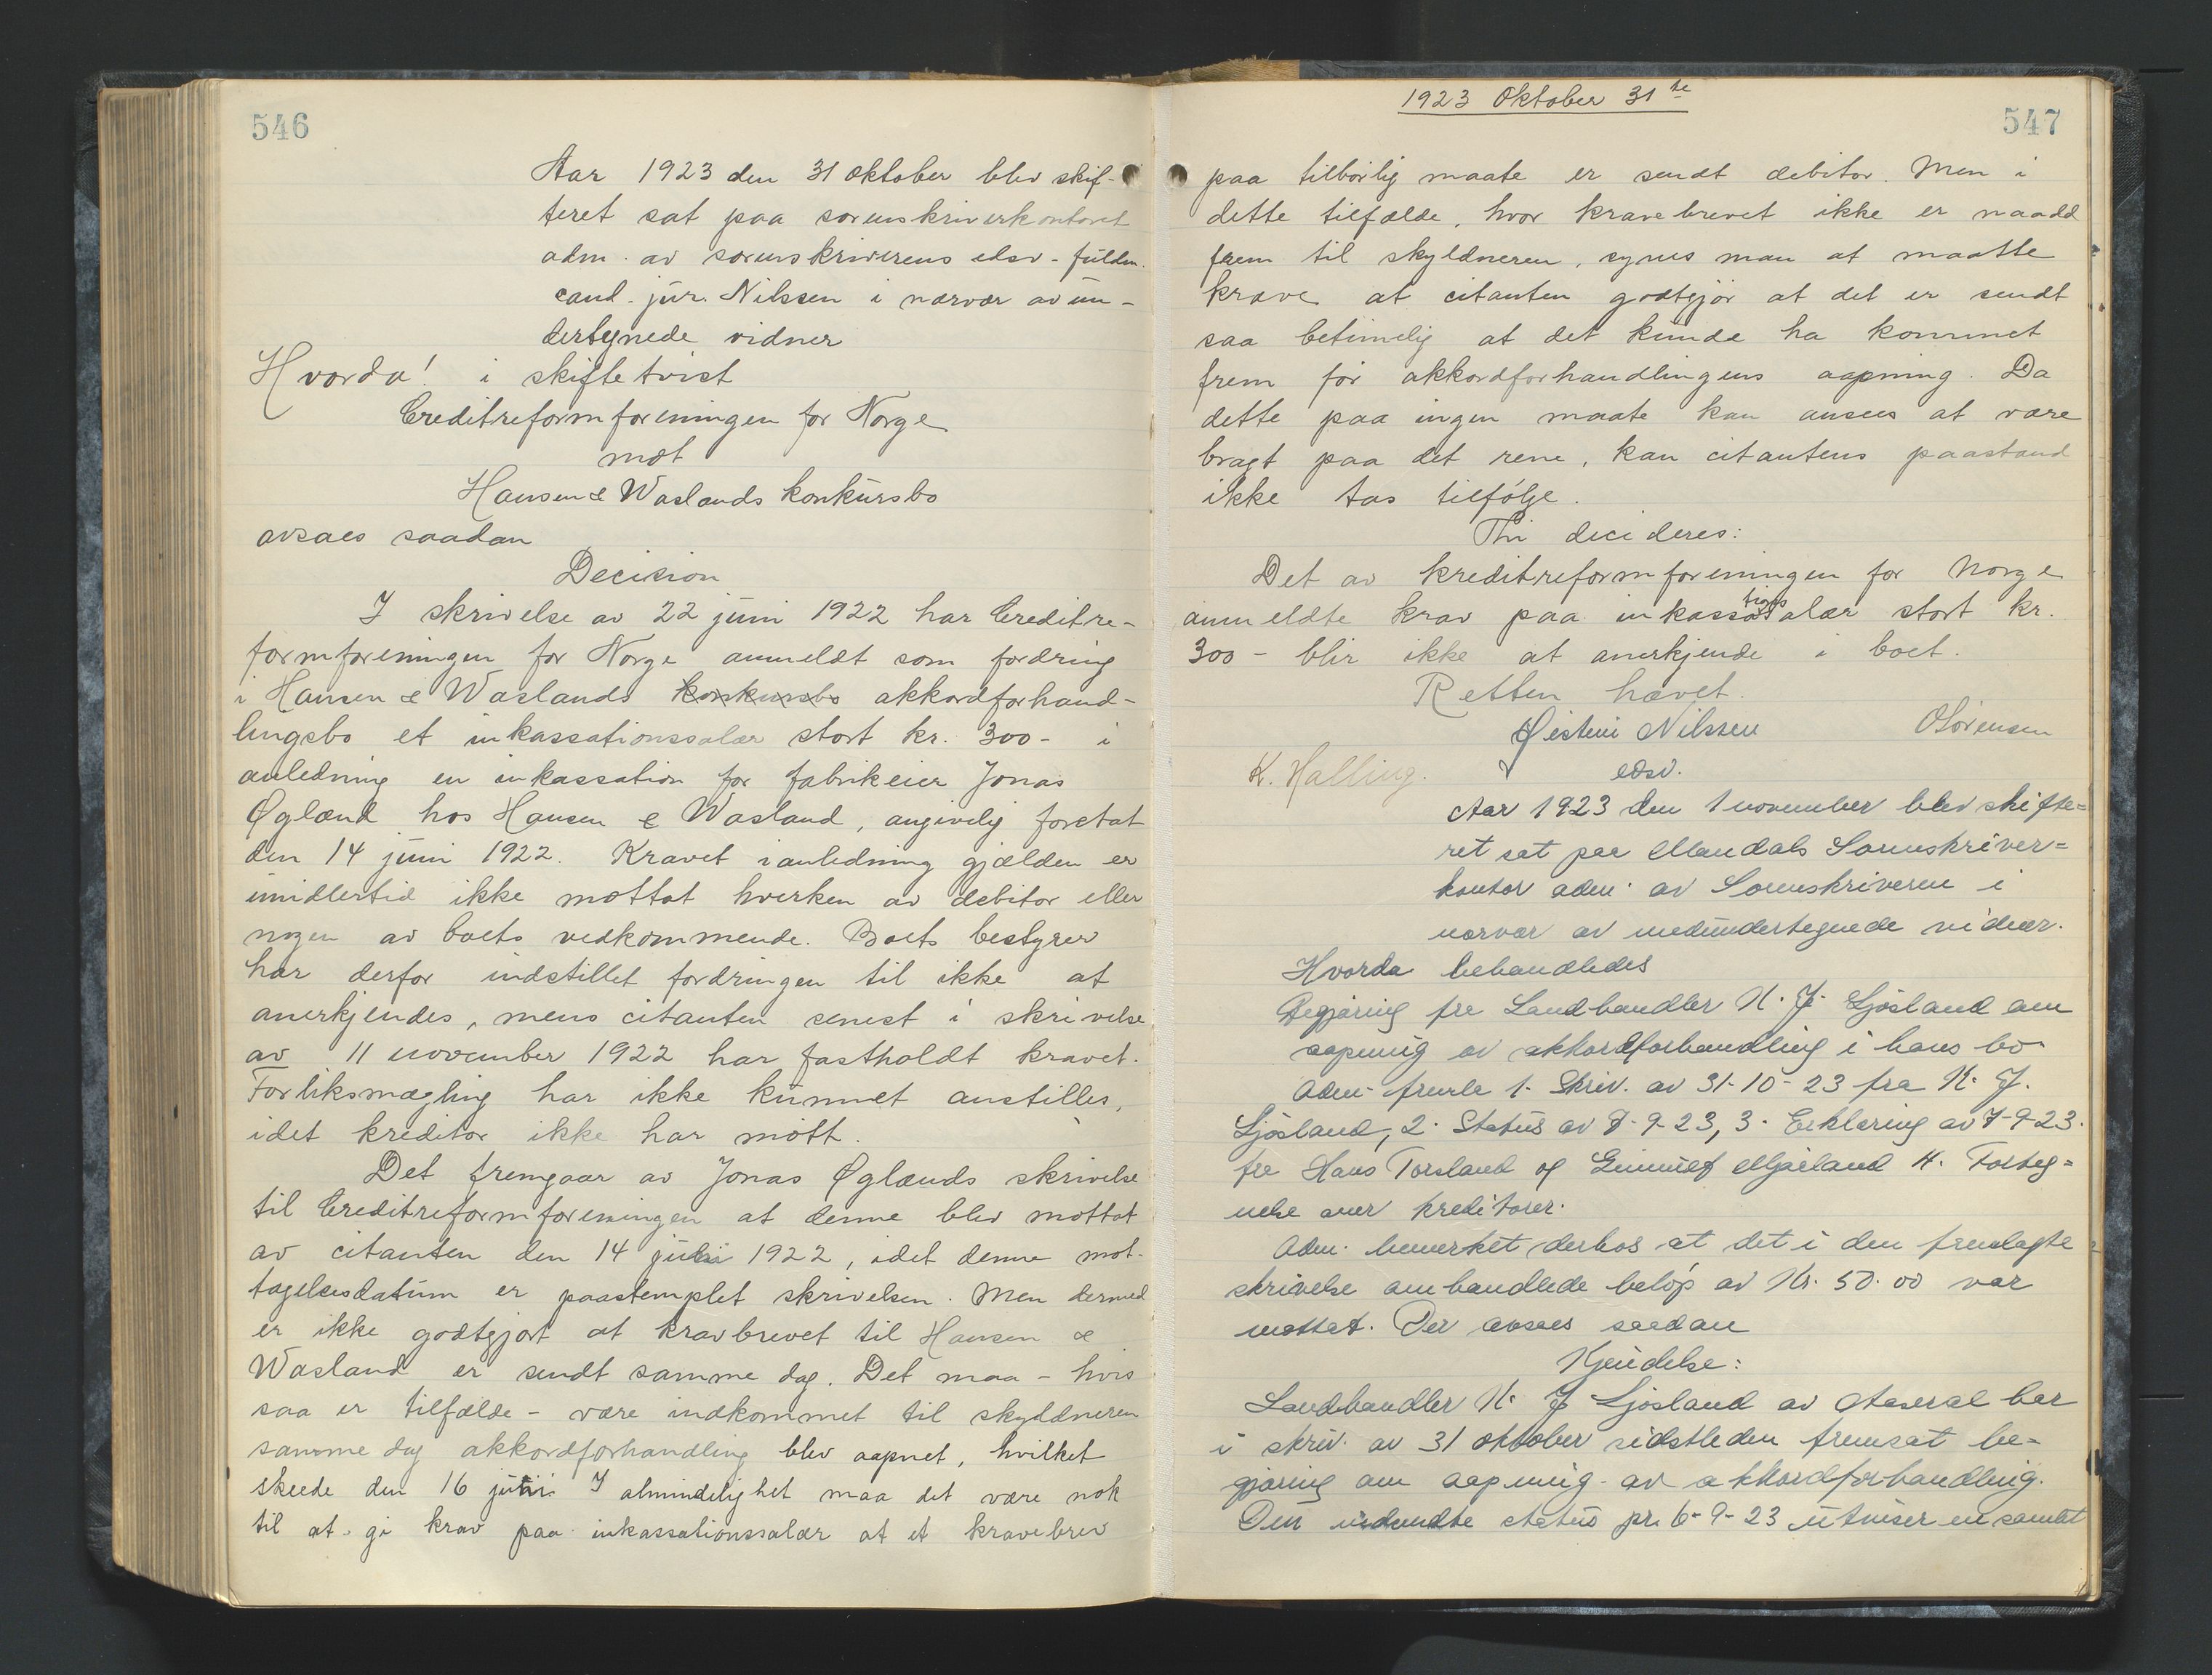 546
Aar 1923 den 31 oktober blev skif-
teret sat paa sorenskriverkontoret
adm. av sorenskriverens edsv-fuldm.
cand. jur. Nilssen i nærvær av un-
dertegnede vidner
Hvorda! i skiftetvist
Creditreformforeningen for Norge
mot
Hansen & Waslands konkursbo
avsaes saadan
Decision
I skrivelse av 22 juni 1922 har Creditre-
formforeningen for Norge anmeldt som fordring
i Hansen & Waslands konkursbo akkordforhand-
lingsbo et inkassationssalær stort kr. 300- i
anledning en inkassation for fabrikeier Jonas
Øglænd hos Hansen & Wasland, angivelig foretat
den 14 juni 1922. Kravet i anledning gjælden er
imidlertid ikke mottat hverken av debitor eller
nogen av boets vedkommende. Boets bestyrer
har derfor indstillet fordringen til ikke at
anerkjendes, mens citanten senest i skrivelse
av 11 november 1922 har fastholdt kravet.
Forliksmægling har ikke kunnet anstilles,
idet kreditor ikke har møtt.
Det fremgaar av Jonas Øglænds skrivelse
til Creditreformforeningen at denne blev mottat
av citanten den 14 juni 1922, idet denne mot-
tagelsesdatum er paastemplet skrivelsen. Men dermed
er ikke godtgjort at kravbrevet til Hansen &
Wasland er sendt samme dag. Det maa - hvis
saa er tilfælde - være indkommet til skyldneren
samme dag akkordforhandling blev aapnet, hvilket
skeede den 16 juni. I almindelighet maa det være nok
til at gi krav paa inkassationssalær at et kravebrev
1923 Oktober 31te
547
paa tilbørlig maate er sendt debitor. Men i
dette tilfælde, hvor kravebrevet ikke er naadd
frem til skyldneren, synes man at maatte
kræve at citanten godtgjør at det er sendt
saa betimelig at det kunde ha kommet
frem før akkordforhandlingens aapning. Da
dette paa ingen maate kan ansees at være
bragt paa det rene, kan citantens paastand
ikke tas tilfølge.
Thi decideres:
Det av kreditreformforeningen for Norge
anmeldte krav paa inkassationssalær stort kr.
300- blir ikke at anerkjende i boet.
Retten hævet.
Øistein Nilssen OSørensen
K. Halling. edsv.
Aar 1923 den 1 november blev skifte=
ret sat paa Mandals Sorenskriver=
kontor adm. av Sorenskriveren i
nærvær av medundertegnede vidner.
Hvorda behandledes
Begjæring fra Landhandler N. J. Ljosland om
aapning av akkordforhandling i hans bo
Adm. fremla 1. Skriv. av 31-10-23 fra N. J.
Ljosland, 2. Status av 7-9-23, 3. Erklæring av 7-9-23.
fra Hans Torsland og Gunnulf Mjaaland 4. Forteg=
nelse over kreditorer.
Adm. bemerket derhos at det i den fremlagte
skrivelse omhandlede beløp av Kr. 50.00 var
mottat. Der avsaes saadan
Kjendelse:
Landhandler N. J Ljosland av Aaseral har
i skriv. av 31 oktober sidstleden fremsat be=
gjæring om aapning av akkordforhandling.
Den indsendte status pr. 6-9-23 utviser en samlet